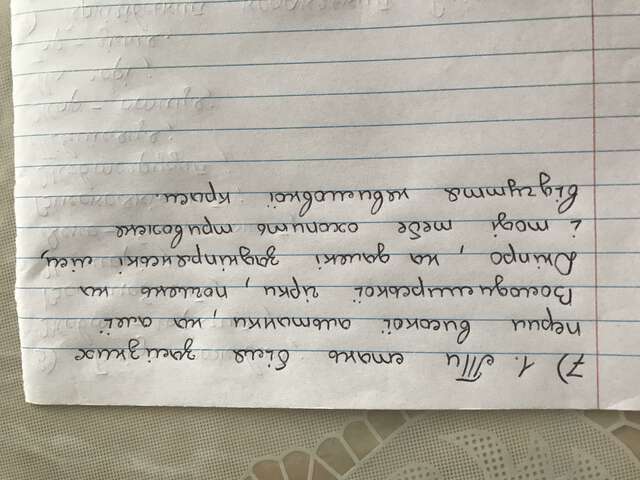 7) 1. Ти стань біля залізних
перил високої альтанки, на алеї
Володимирської гірки, поглянь на
Дніпро, на далекі задніпрянські ліси,
і тоді тебе охопить тривожне
відчуття невимовної краси.